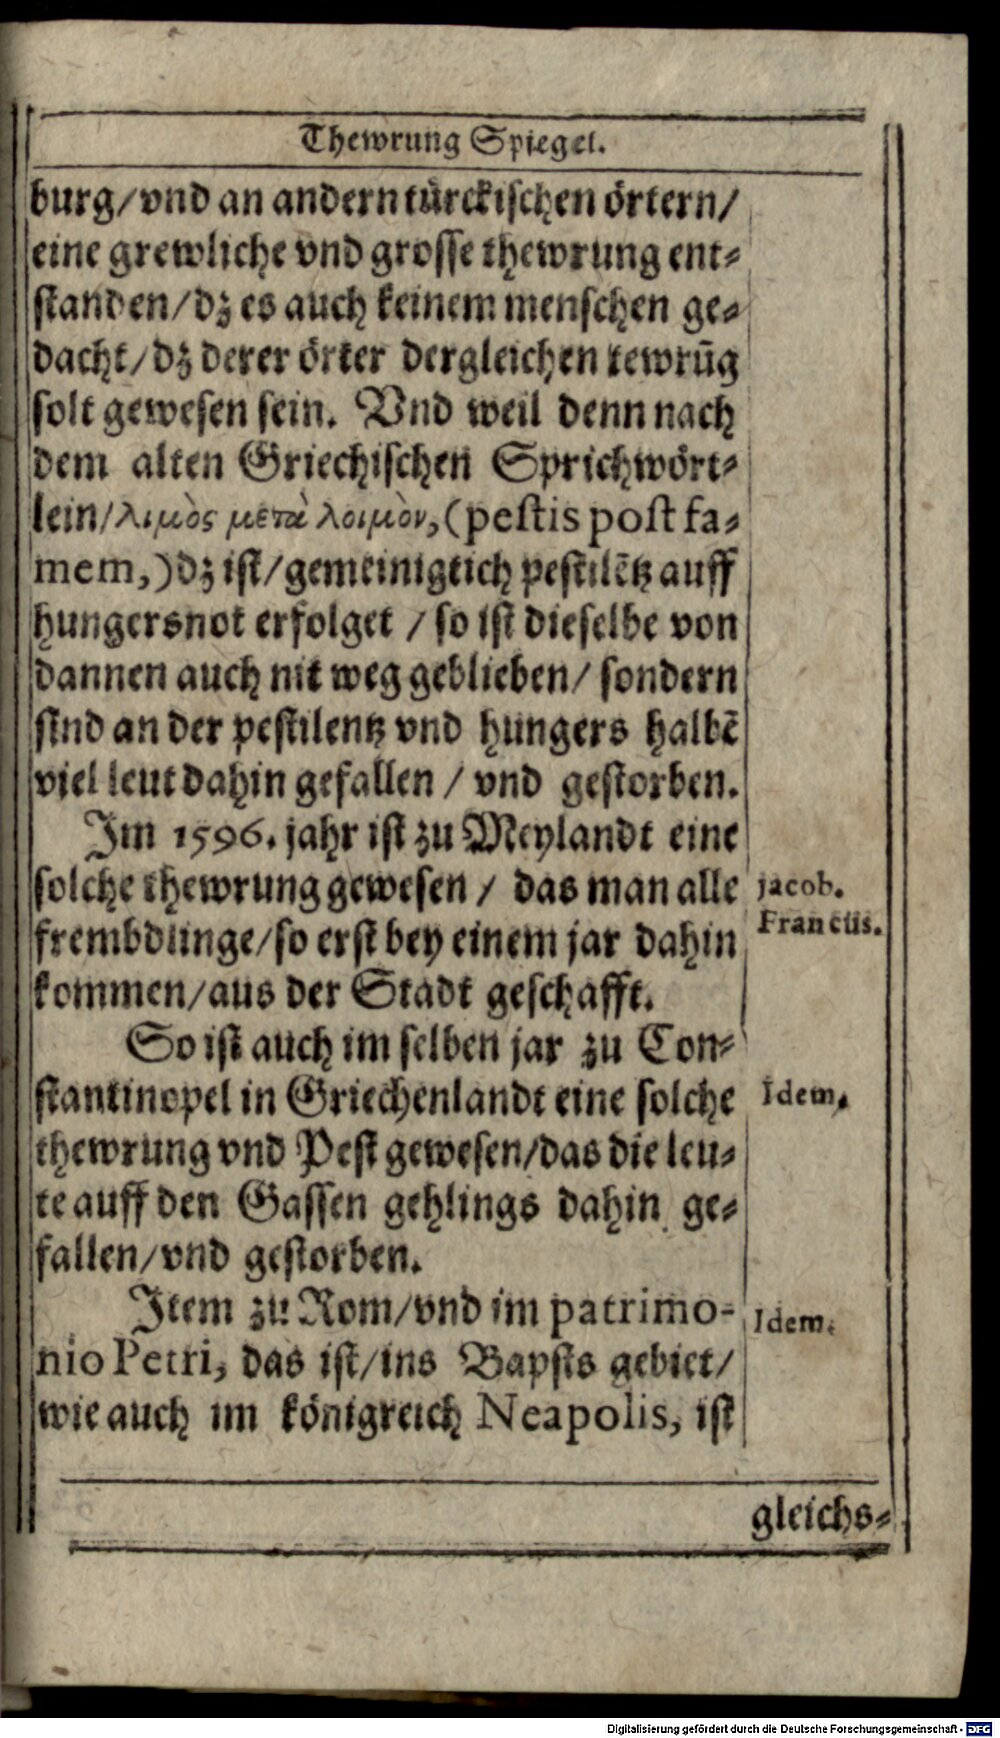 Thewrung Spiegel.
burg/vnd an andern türckischen örtern/
eine grewliche vnd grosse thewrung ent-
standen/dz es auch keinem menschen ge-
dacht/dz derer örter dergleichen tewrūg
solt gewesen sein. Vnd weil denn nach
dem alten Griechischen Sprichwört-
lein/λιμὸς μετὰ λοιμὸν,(pestis post fa-
mem,)dz ist/gemeiniglich pestilētz auff
hungersnot erfolget / so ist dieselbe von
dannen auch nit weg geblieben/ sondern
sind an der pestilentz vnd hungers halbē
viel leut dahin gefallen / vnd gestorben.
Im 1596. jahr ist zu Meylandt eine
solche thewrung gewesen / das man alle
jacob.
Francus.
frembdlinge/so erst bey einem jar dahin
kommen/aus der Stadt geschafft.
So ist auch im selben jar zu Con-
stantinopel in Griechenlandt eine solche
Idem,
thewrung vnd Pest gewesen/das die leu-
te auff den Gassen gehlings dahin ge-
fallen/vnd gestorben.
Item zu Rom/vnd im patrimo-
Idem.
nio Petri, das ist/ins Bapsts gebiet/
wie auch im königreich Neapolis, ist
gleichs-
Digitalisierung gefördert durch die Deutsche Forschungsgemeinschaft - DFG